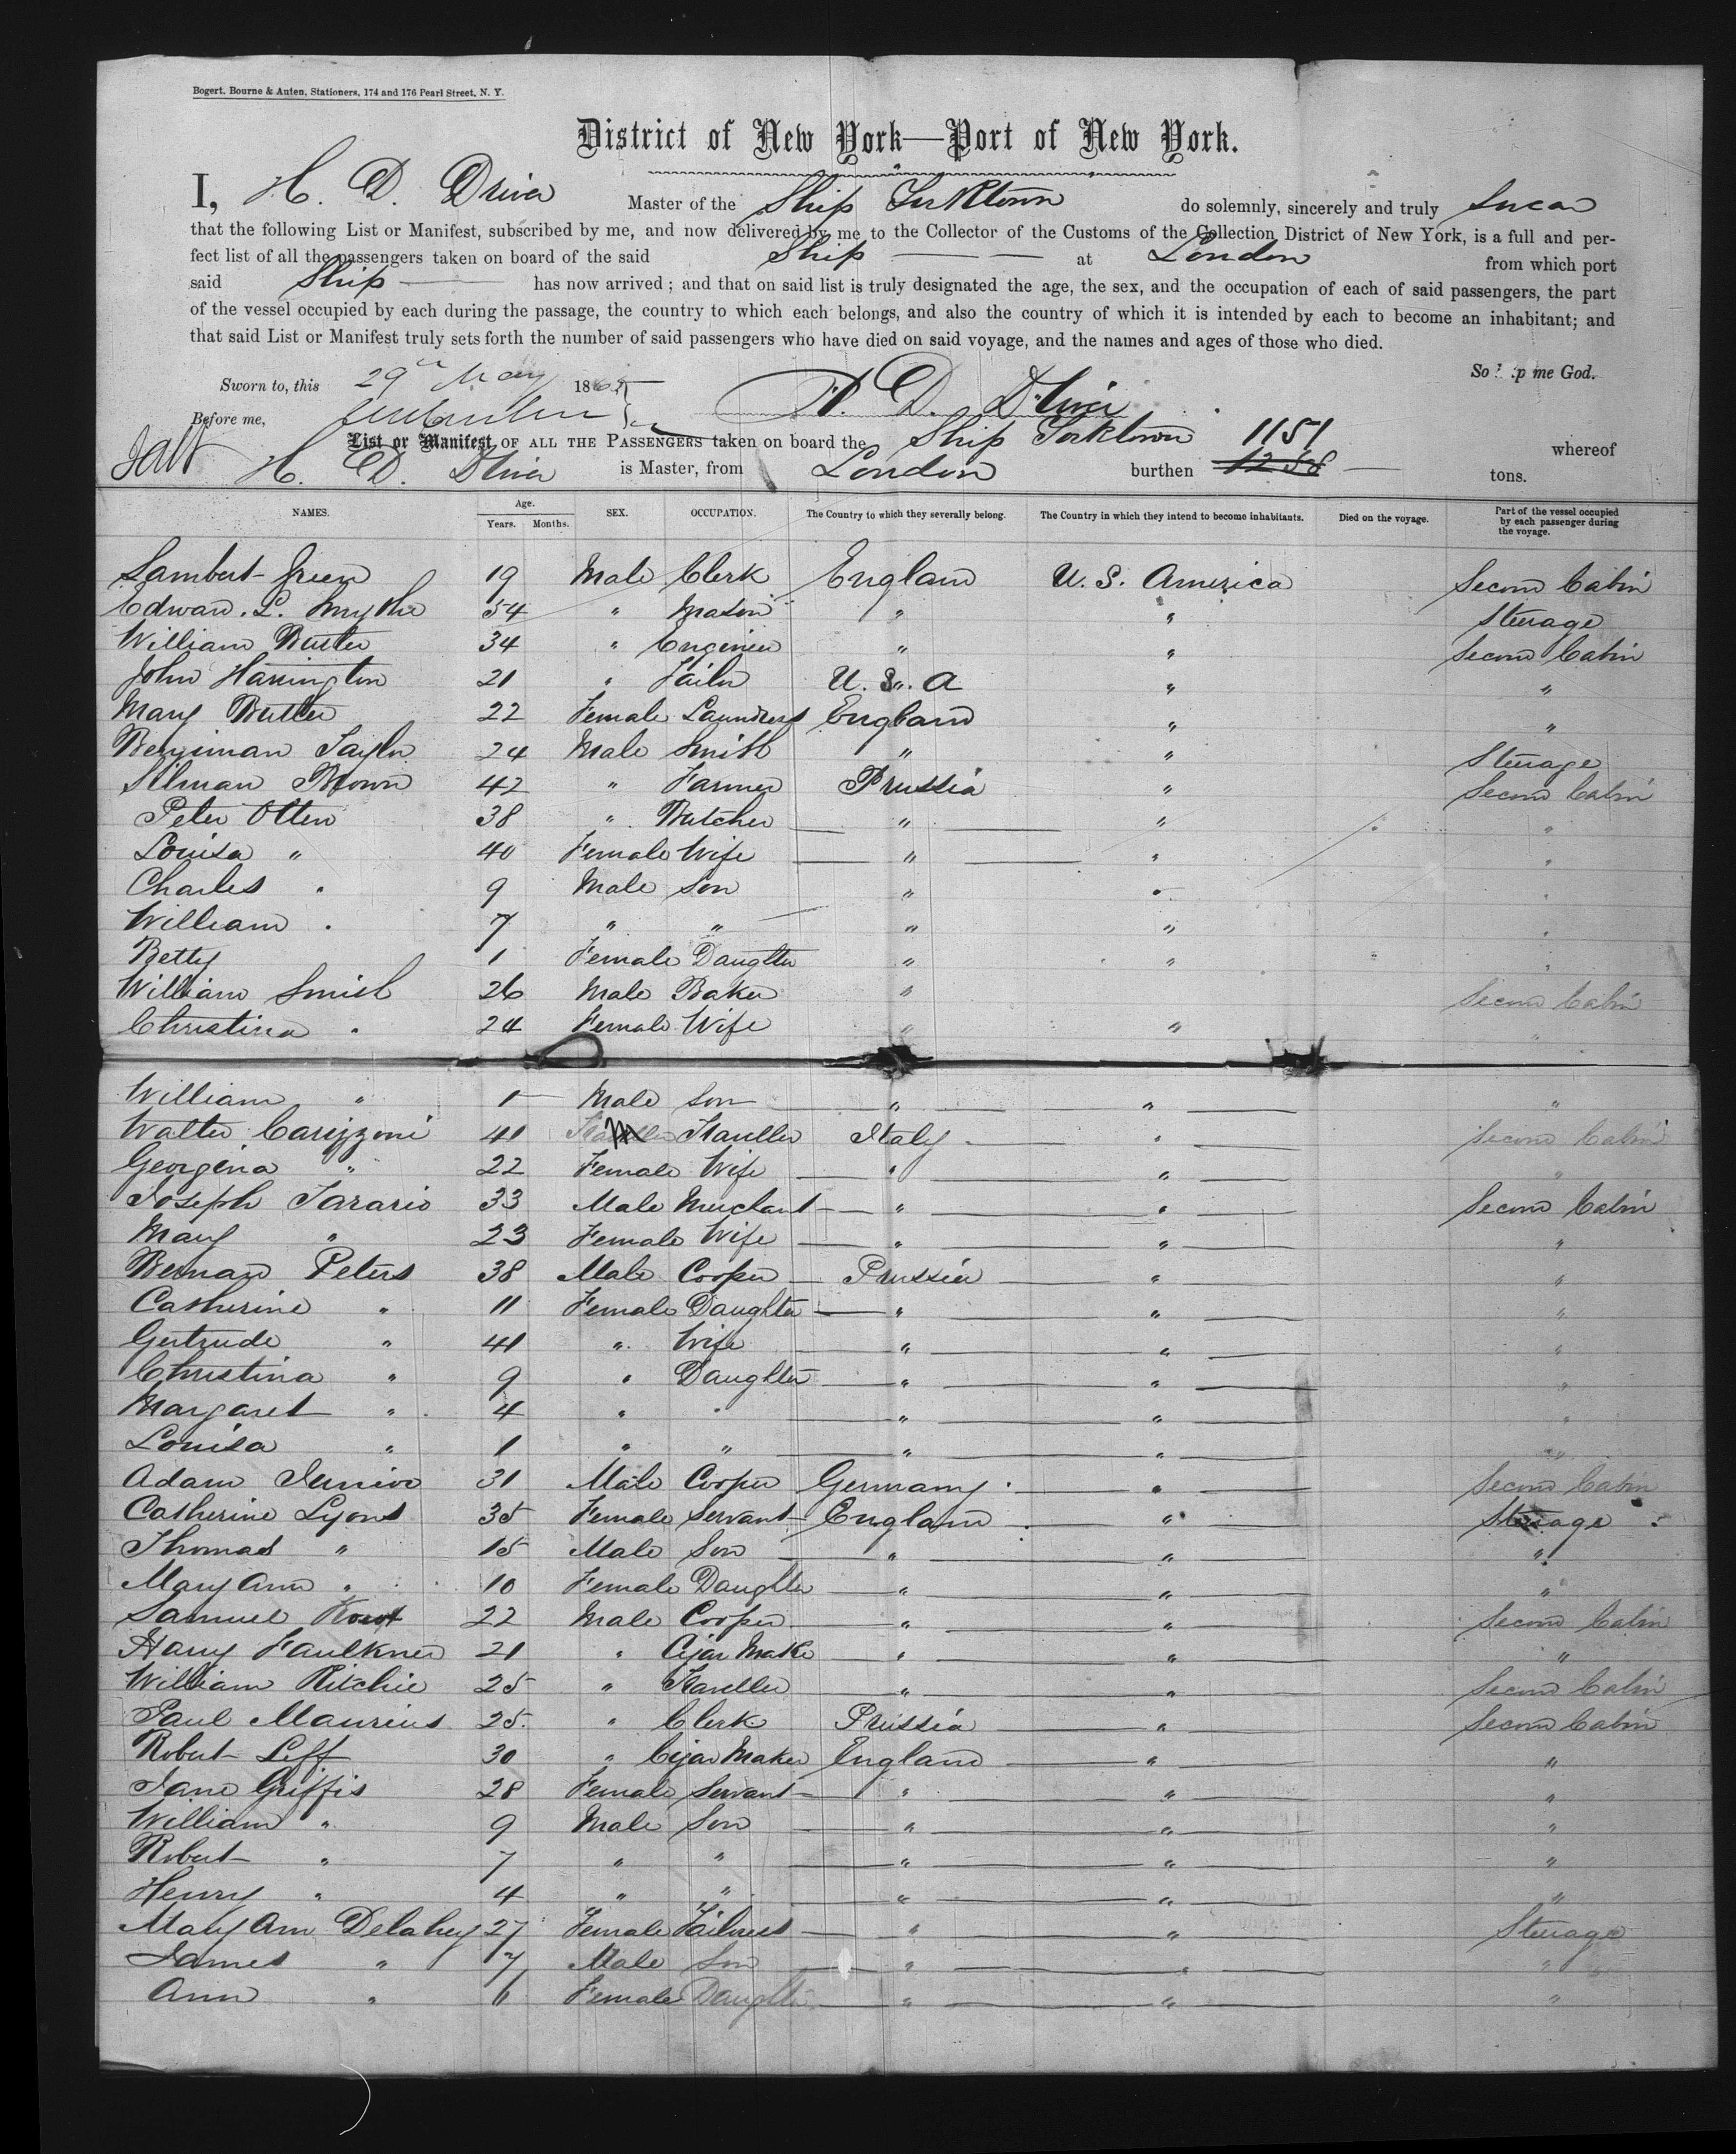 Bogert, Bourne & Auten, Stationers, 174 and 176 Pearl Street, N. Y.
District of New York—Port of New York.
I, H. D. Driver Master of the Ship Yorktown do solemnly, sincerely and truly Swear
that the following List or Manifest, subscribed by me, and now delivered by me to the Collector of the Customs of the Collection District of New York, is a full and per-
fect list of all the passengers taken on board of the said Ship at London from which port
said Ship has now arrived; and that on said list is truly designated the age, the sex, and the occupation of each of said passengers, the part
of the vessel occupied by each during the passage, the country to which each belongs, and also the country of which it is intended by each to become an inhabitant; and
that said List or Manifest truly sets forth the number of said passengers who have died on said voyage, and the names and ages of those who died.
So me God.
Sworn to, this 29th May 186
Before me, H. D. Driver
List or Manifest OF ALL THE PASSENGERS taken on board the Ship Yorktown 1151 whereof
H. D. Driver is Master, from London burthen 1258 tons.
NAMES. Age. Years. Months. SEX. OCCUPATION. The Country to which they severally belong. The Country in which they intend to become inhabitants. Died on the voyage. Part of the vessel occupied by each passenger during the voyage.
Lambert Green 19 Male Clerk England U. S. America Second Cabin
Edward. L. Smythe 54 " Mason " " Steerage
William Butler 34 " Engineer " " Second Cabin
John Harrington 21 " Tailor U. S. A " "
Mary Butler 22 Female Laundress England " "
Berriman Taylor 24 Male Smith " " Steerage
Silman Brown 42 " Farmer Prussia " Second Cabin
Peter Otten 38 " Butcher " " "
Louisa " 40 Female Wife " " "
Charles " 9 Male Son " " "
William " 7 " " " " "
Betty 1 Female Daughter " " "
William Smith 26 Male Baker " Second Cabin
Christina " 24 Female Wife " " "
William " 1 Male Son " " "
Walter Carizzoni 41 Traveller Italy " Second Cabin
Georgina " 22 Female Wife " " "
Joseph Tarario 33 Male Merchant " " Second Cabin
Mary " 23 Female Wife " " "
Bernard Peters 38 Male Cooper Prussia " "
Catherine " 11 Female Daughter " " "
Gertrude " 41 " Wife " " "
Christina " 9 " Daughter " " "
Margaret " 4 " " " " "
Louisa " 1 " " " " "
Adam Junior 31 Male Cooper Germany " Second Cabin
Catherine Lyons 35 Female Servant England " Steerage
Thomas " 15 Male Son " " "
Mary Ann " 10 Female Daughter " " "
Samuel 22 Male Cooper " " Second Cabin
Harry Faulkner 21 " Cigar Maker " " "
William Ritchie 25 " Traveller " " Second Cabin
Paul Maurius 25. " Clerk Prussia " Second Cabin
Robert Leff 30 " Cigar Maker England " "
Jane Griffis 28 Female Servant " " "
William " 9 Male Son " " "
Robert " 7 " " " " "
Henry " 4 " " " " "
Mary Ann Delahey 27 Female Tailoress " " Steerage
James " 7 Male Son " " "
Ann " 6 Female Daughter " " "